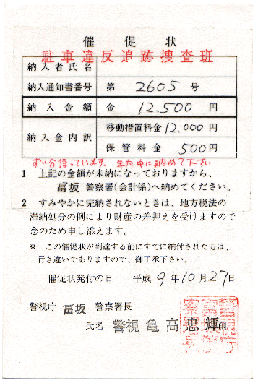 催促状
駐車違反追跡捜査班
納入者氏名
納入通知書番号 第 2605 号
納入金額 金 12,500 円
納入金内訳 移動措置料金 12,000 円
保管料金 500 円
1 上記の金額が未納になっておりますから、
富坂 警察署(会計係)へ納めてください。
2 すみやかに完納されないときは、地方税法の
滞納処分の例により財産の差押えを受けますので
念のため申し添えます。
※ この催促状が到達する前にすでに納付されたものは、
行き違いでありますので、御了承下さい。
催促状発付の日 平成 9年10月27日
警視庁 富坂 警察署長
氏名 警視 亀高忠輝